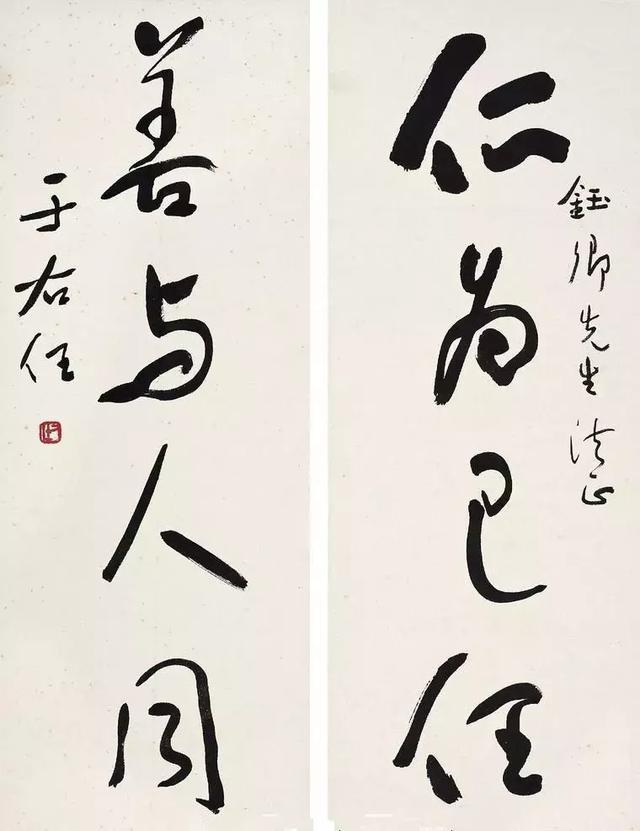 鈺卿先生法正
仁為己任
善與人同
于右任